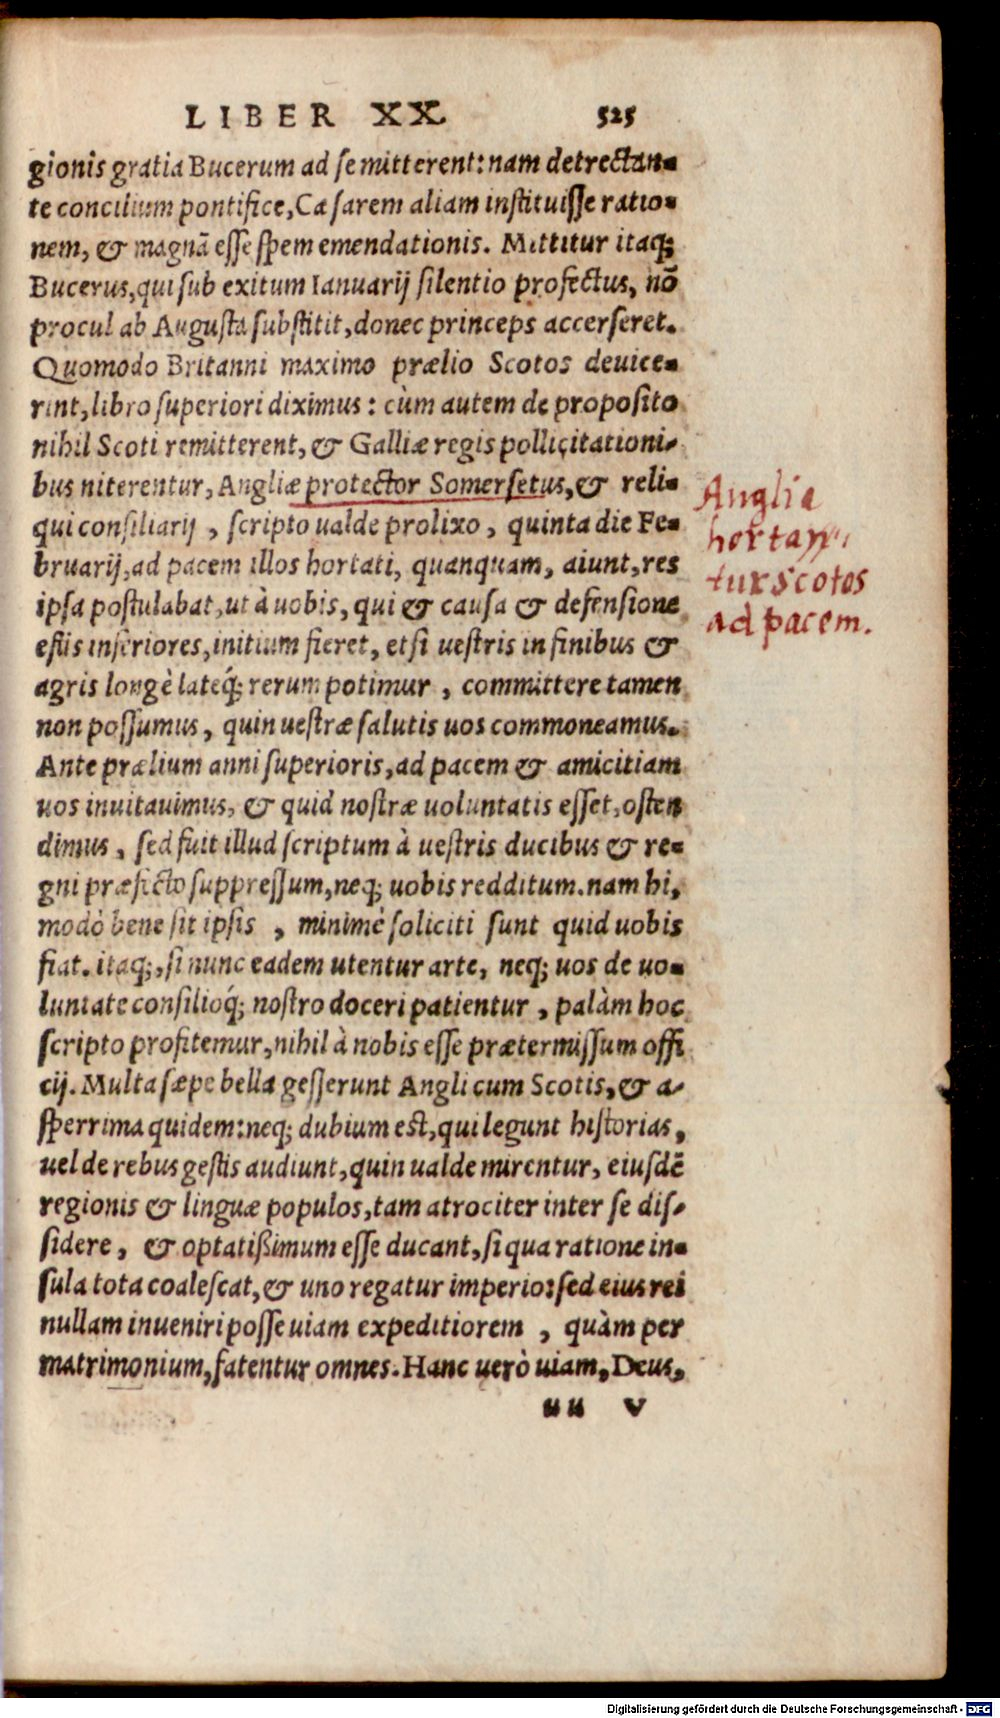 LIBER XX. 525
gionis gratia Bucerum ad se mitterent: nam detrectan-
te concilium pontifice, Cæsarem aliam instituisse ratio-
nem, & magnã esse spem emendationis. Mittitur itaq;
Bucerus, qui sub exitum Ianuarij silentio profectus, nõ
procul ab Augusta substitit, donec princeps accerseret.
Quomodo Britanni maximo prælio Scotos deuice-
rint, libro superiori diximus: cùm autem de proposito
nihil Scoti remitterent, & Galliæ regis pollicitationi-
bus niterentur, Angliæ protector Somersetus, & reli-
qui consiliarij, scripto ualde prolixo, quinta die Fe-
bruarij, ad pacem illos hortati, quanquam, aiunt, res
ipsa postulabat, ut à uobis, qui & causa & defensione
estis inferiores, initium fieret, etsi uestris in finibus &
agris longè lateq́; rerum potimur, committere tamen
non possumus, quin uestræ salutis uos commoneamus.
Ante prælium anni superioris, ad pacem & amicitiam
uos inuitauimus, & quid nostræ uoluntatis esset, osten
dimus, sed fuit illud scriptum à uestris ducibus & re-
gni præfecto suppressum, neq; uobis redditum. nam hi,
modò bene sit ipsis, minimè soliciti sunt quid uobis
fiat. itaq;, si nunc eadem utentur arte, neq; uos de uo-
luntate consilioq́; nostro doceri patientur, palàm hoc
scripto profitemur, nihil à nobis esse prætermissum offi
cij. Multa sæpe bella gesserunt Angli cum Scotis, & a-
sperrima quidem: neq; dubium est, qui legunt historias,
uel de rebus gestis audiunt, quin ualde mirentur, eiusdẽ
regionis & linguæ populos, tam atrociter inter se dis-
sidere, & optatißimum esse ducant, si qua ratione in-
sula tota coalescat, & uno regatur imperio: sed eius rei
nullam inueniri posse uiam expeditiorem, quàm per
matrimonium, fatentur omnes. Hanc uerò uiam, Deus,
uu v
Anglia
hortan
tur Scotos
ad pacem.
Digitalisierung gefördert durch die Deutsche Forschungsgemeinschaft - DFG